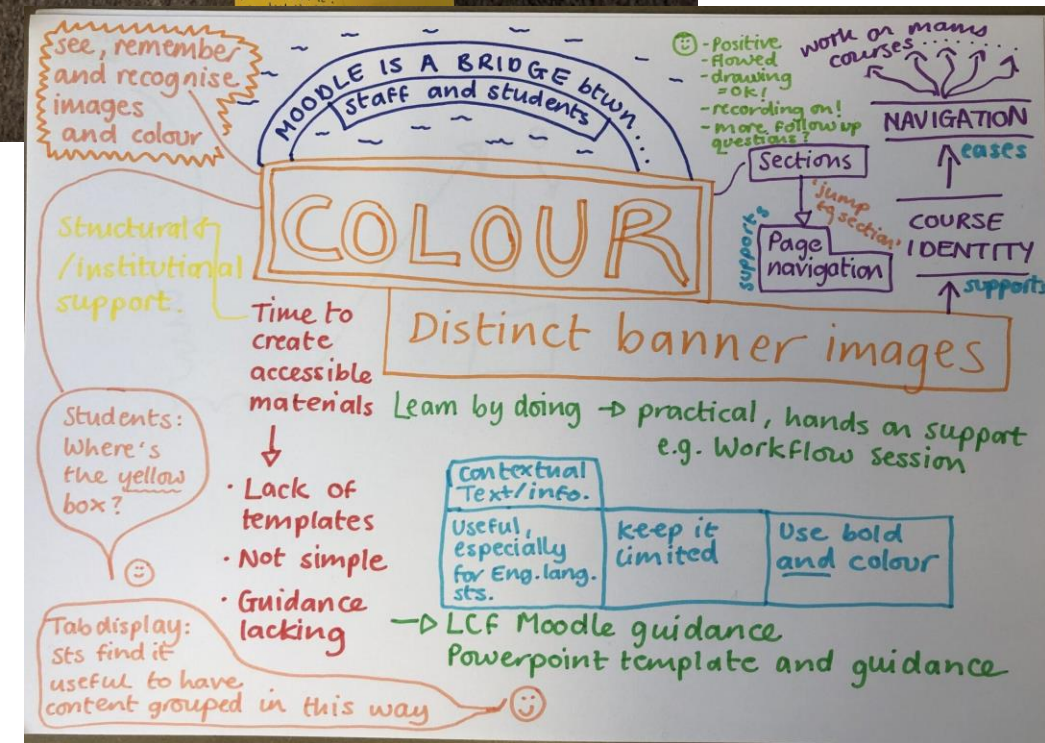 see, remember
and recognise
images
and colour
MOODLE IS A BRIDGE btwn...
staff and students
- Positive
- flowed
- drawing
= OK!
- recording on!
- more follow up
questions?
work on many
courses......
NAVIGATION
eases
COURSE
IDENTITY
supports
Sections
'jump
to section'
supports
Page
navigation
COLOUR
Distinct banner images
Structural
/institutional
support.
Time to
create
accessible
materials
· Lack of
templates
· Not simple
· Guidance
lacking
Learn by doing → practical, hands on support
e.g. Workflow session
Contextual
Text/info.
Useful,
especially
for Eng. lang.
sts.
Keep it
limited
Use bold
and colour
→ LCF Moodle guidance
Powerpoint template and guidance
Students:
Where's
the yellow
box?
Tab display:
Sts find it
useful to have
content grouped in this way